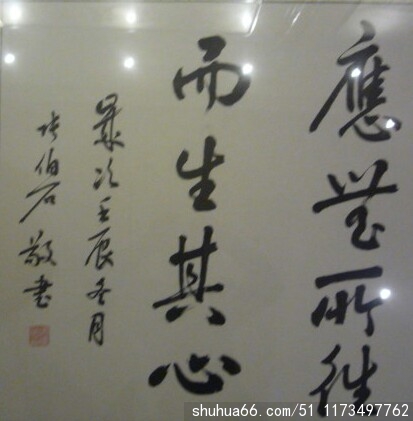 應無所住
而生其心
歲次壬辰冬月
張伯石敬書
shuhua66.com/51_1173497762